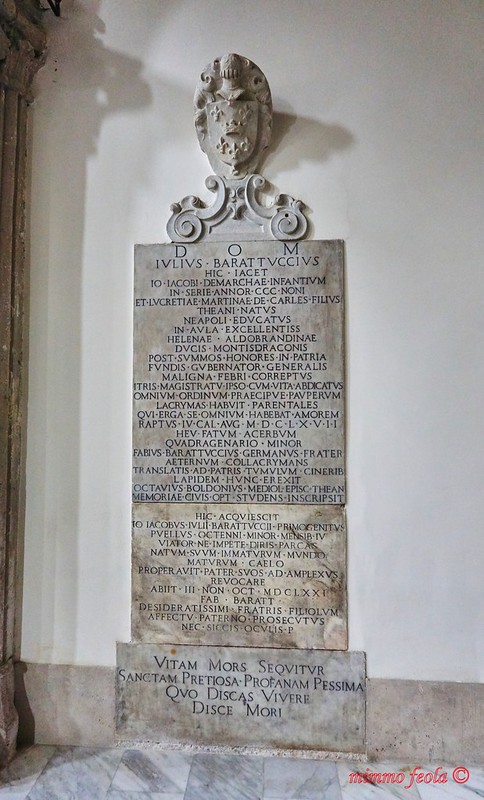 D O M
IVLIVS · BARATTVCCIVS
HIC · IACET
IO · IACOBI · DEMARCHAE · INFANTIVM
IN · SERIE · ANNOR · CCC · NONI
ET · LVCRETIAE · MARTINAE · DE · CARLES · FILIVS
THEANI · NATVS
NEAPOLI · EDVCATVS
IN · AVLA · EXCELLENTISS
HELENAE · ALDOBRANDINAE
DVCIS · MONTISDRACONIS
POST · SVMMOS · HONORES · IN · PATRIA
FVNDIS · GVBERNATOR · GENERALIS
MALIGNA · FEBRI · CORREPTVS
ITRIS · MAGISTRATV · IPSO · CVM · VITA · ABDICATVS
OMNIVM · ORDINVM · PRAECIPVE · PAVPERVM
LACRYMAS · HABVIT · PARENTALES
QVI · ERGA · SE · OMNIVM · HABEBAT · AMOREM
RAPTVS · IV · CAL · AVG · M · D · C · L · X · V · I · I
HEV · FATVM · ACERBVM
QVADRAGENARIO · MINOR
FABIVS · BARATTVCCIVS · GERMANVS · FRATER
AETERNVM · COLLACRYMANS
TRANSLATIS · AD · PATRIS · TVMVLVM · CINERIB
LAPIDEM · HVNC · EREXIT
OCTAVIVS · BOLDONIVS · MEDIOL · EPISC · THEAN
MEMORIAE · CIVIS · OPT · STVDENS · INSCRIPSIT
HIC · ACQVIESCIT
IO IACOBVS · IVLII · BARATTVCCII · PRIMOGENITVS
PVELLVS · OCTENNI · MINOR · MENSIB · IV
VIATOR · NE · IMPETE · DIRIS · PARCAS
NATVM · SVVM · IMMATVRVM · MVNDO
MATVRVM · CAELO
PROPERAVIT · PATER · SVOS · AD · AMPLEXVS
REVOCARE
ABIIT · III · NON · OCT · MDCLXXI
FAB · BARATT
DESIDERATISSIMI · FRATRIS · FILIOLVM
AFFECTV · PATERNO · PROSECVTVS
NEC · SICCIS · OCVLIS · P
VITAM MORS SEQVITVR
SANCTAM PRETIOSA · PROFANAM PESSIMA
QVO DISCAS VIVERE
DISCE MORI
mimmo feola ©